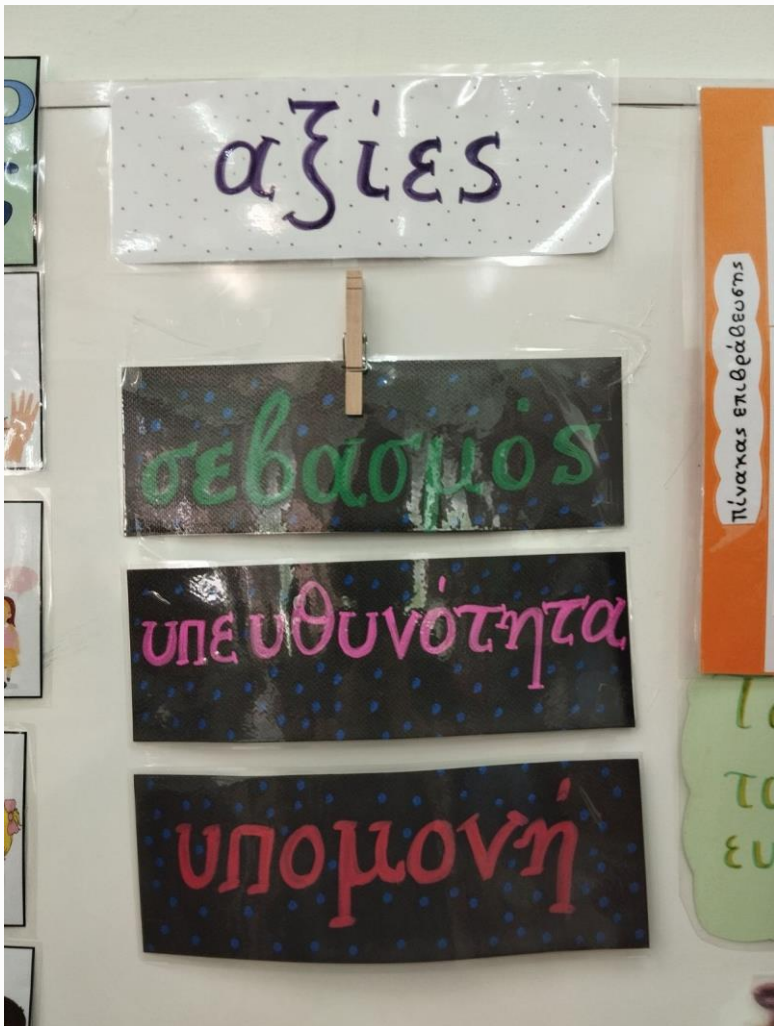 αξίες
σεβασμός
υπευθυνότητα
υπομονή
Πίνακας επιβράβευσης